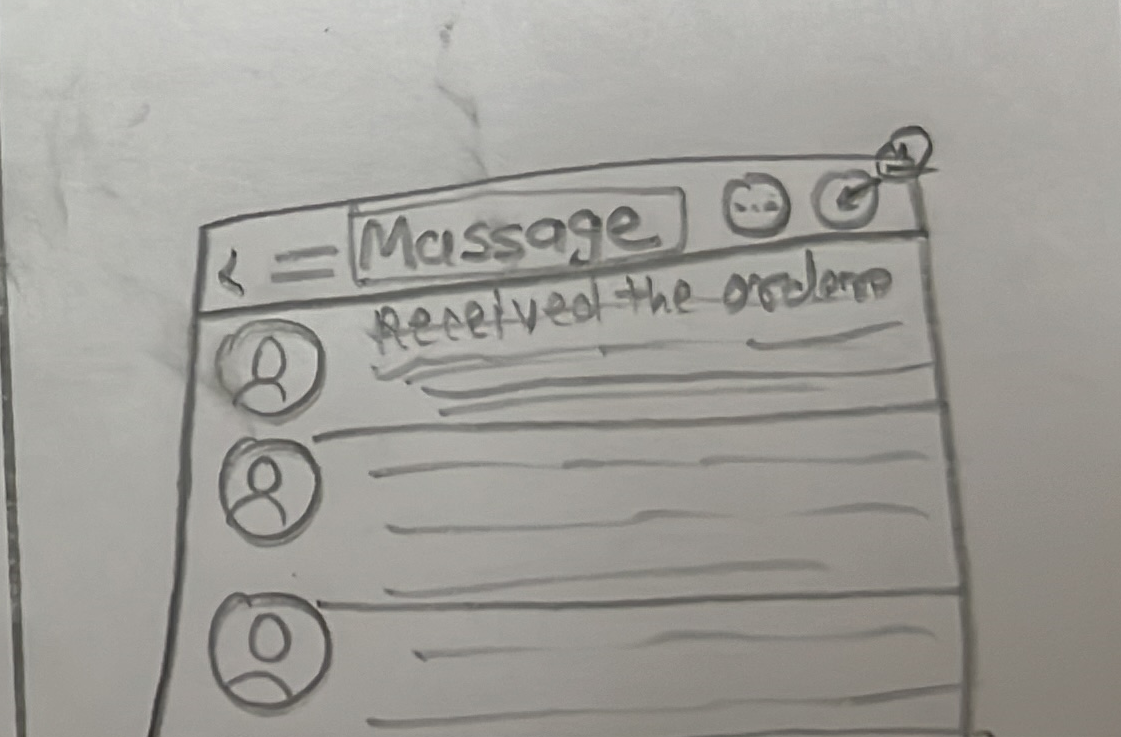 Massage
Received the orders